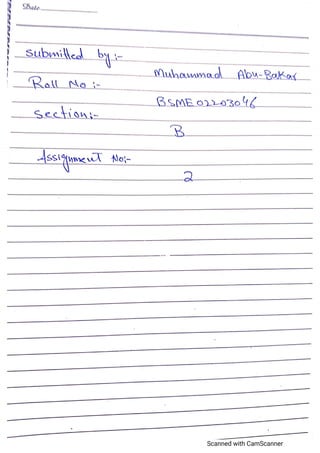 Date
Submitted by :-
Muhammad Abu-Bakar
Roll No :-
BSME02203046
Section:-
B
Assignment No:-
2
Scanned with CamScanner